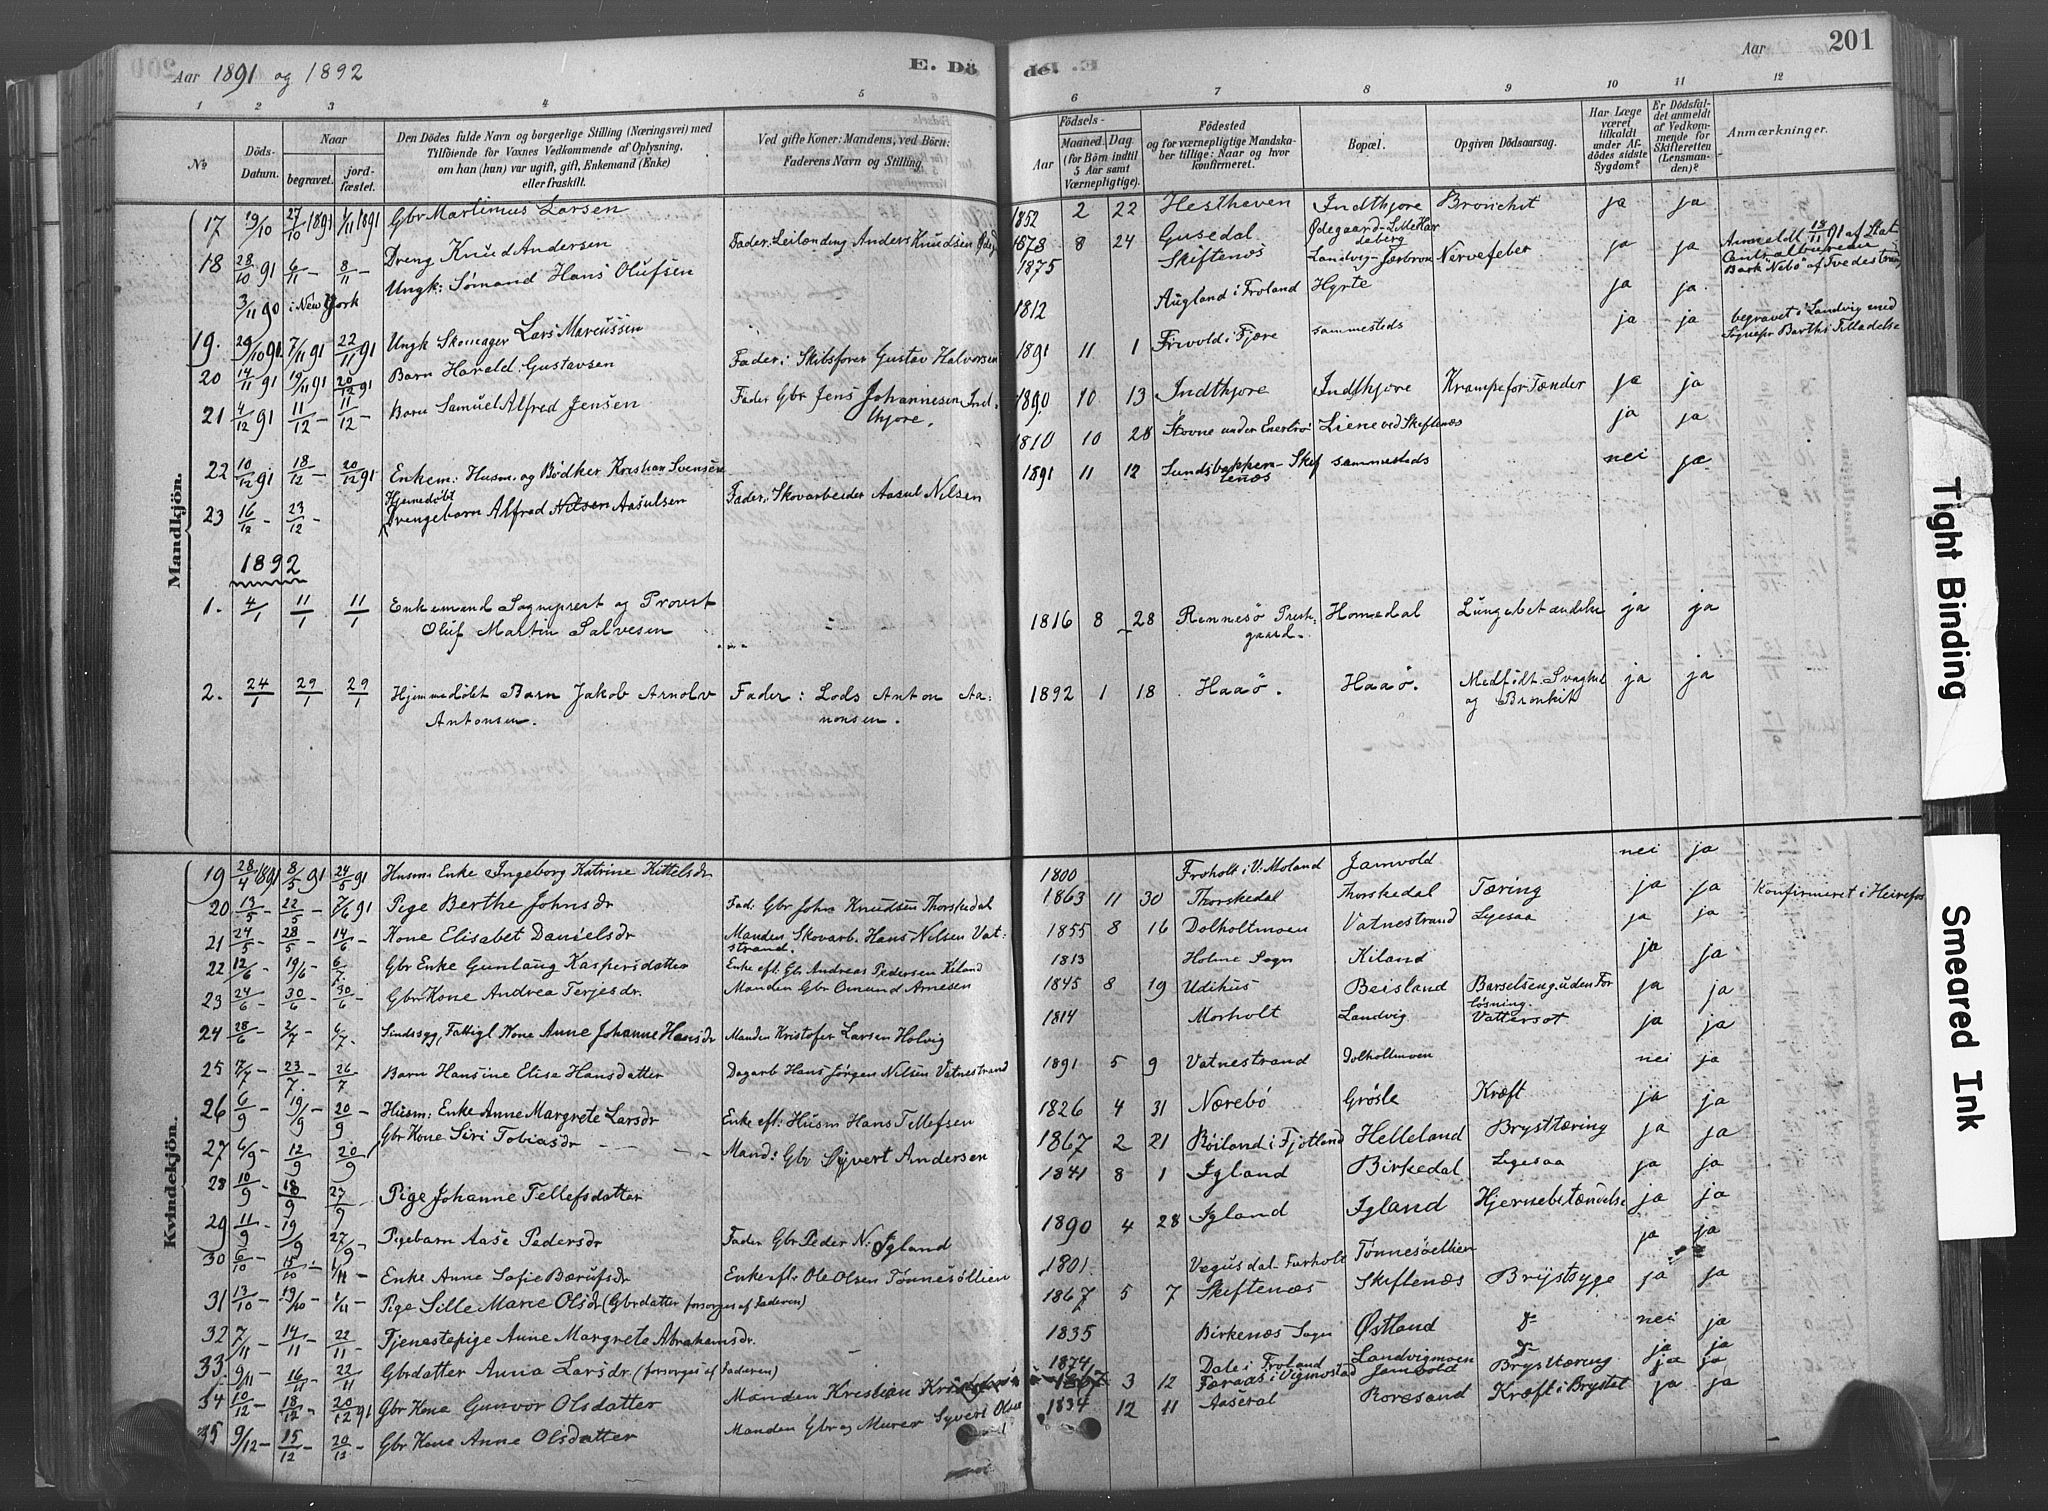 Aar 1891 og 1892
E. Dö
de.
Aar
201
1 2 3 4 5
6 7 8 9 10 11 12
No
Döds-Datum.
Naar
begravet.
jord-fæstet.
Den Dödes fulde Navn og borgerlige Stilling (Næringsvei) med
Tilföiende for Voxnes Vedkommende af Oplysning,
om han (hun) var ugift, gift, Enkemand (Enke)
eller fraskilt.
Ved gifte Koner: Mandens, ved Börn:
Faderens Navn og Stilling.
Födsels-
Aar
Maaned. Dag.
(for Börn indtil
5 Aar samt
Værnepligtige).
Födested
og for værnepligtige Mandska-
ber tillige: Naar og hvor
konfirmeret.
Bopæl.
Opgiven Dödsaarsag.
Har Læge
været
tilkaldt
under Af-
dödes sidste
Sygdom?
Er Dödsfal-
det anmeldt
af Vedkom-
mende for
Skifteretten
(Lensman-
den)?
Anmærkninger.
Mandkjön.
17 19/10 27/10 1891 1/11 1891 Gbr Martinius Larsen 1852 2 22 Hestheven Indthjore Bronchit ja ja
18 28/10 91 6/11 - 8/11 - Dreng Knud Andersen Fader: Leilænding Anders Knudsen 1878 8 24 Gusedal Ødegaard-Lille Har
deberg
Nervefeber ja ja
3/11 90 i New York Ungk: Sømand Hans Olufsen 1875 Skiftenæs Landvig Anmeldt 18/11 91 af Stat.
Centralbureau
Bark "Nebö" af Tvedestrand
19. 29/10 91. 7/11 91 22/11 91 Ungk Skomager Lars Marcussen 1812 Augland i Froland Hyrte ja ja
20 14/11 91 19/11 91 20/12 91 Barn Harald Gustavsen Fader: Skibsfører Gustav Halvorsen 1891 11 1 Frivold i Fjære sammesteds ja ja begravet i Landvig med
Sognepr Barths Tilladelse
21 4/12 91 11/12 - 11/12 - Barn Samuel Alfred Jensen Fader Gbr Jens Johannesen Ind-
thjore. 1890 10 13 Indthjore Indthjore Krampe for Tænder ja ja
22 10/12 91 18/12 - 20/12 91 Enkem: Husm. og Bødker Kristian Svensen 1810 10 28 Stovne under Enerbrö Liene ved Skiftenæs ja ja
23 16/12 - 23/12 - Hjemedøbt
Drengebarn Alfred Nilsen Aasulsen Fader: Skovarbeider Aasul Nilsen 1891 11 12 Lundsbakken - Skif
tenæs sammesteds nei ja
1892
1. 4/1 11/1 11/1 Enkemand Sogneprest og Provst
Oluf Martin Salvesen 1816 8 28 Rennesö Prest-
gaard Homedal Lungebetændelse ja ja
2. 24/1 29/1 29/1 Hjemmedøbt Barn Jakob Arnolv
Antonsen. Fader: Lods Anton Aa-
nonsen. 1892 1 18 Haaö. Haaö. Medfödt Svaghed
og Bronkit ja ja
Kvindekjön.
19 28/4 1891 8/5 91 24/5 91 Husm: Enke Ingeborg Katrine Kittelsdr 1800 Froholt i V. Moland Jamvold nei ja
20 13/5 - 22/5 - 7/6 91 Pige Berthe Johnsdr Fad. Gbr John Knudsen Thorskedal 1863 11 30 Thorskedal Thorskedal Tæring ja ja Konfirmeret i Heirefos
21 24/5 - 28/5 - 14/6 - Kone Elisabet Danielsdr Manden Skovarb. Hans Nilsen Vat-
strand. 1855 8 16 Dolholtmoen Vatnestrand Lyesaa ja ja
22 12/6 - 19/6 - 6/7 - Gbr Enke Gunlaug Kaspersdatter Enke eft. Gbr Andreas Pedersen Kiland 1813 Holme Sogn Kiland ja ja
23 24/6 - 30/6 - 30/6 - Gbr Kone Andrea Terjesdr. Manden Gbr Omund Arnesen 1845 8 19 Udihus Beisland Barselseng uden For
løsning. ja ja
24 28/6 - 2/7 - 6/7 - Sindssyg, Fattigl Kone Anne Johanne Hansdr Manden Kristofer Larsen Holvig 1814 Morholt Landvig Vattersot ja ja
25 17/7 - 23/7 - 26/7 Barn Hansine Elise Hansdatter Dagarb Hans Jørgen Nilsen Vatnestrand 1891 5 9 Vatnestrand Dolholtmoen nei ja
26 6/9 - 19/9 - 20/9 - Husm: Enke Anne Margrete Larsdr Enke eft: Husm Hans Tellefsen 1826 4 31 Nærebö Grösle Kræft ja ja
27 6/9 - 12/9 - 20/9 Gbr Kone Siri Tobiasdr Mand: Gbr Syvert Andersen 1867 2 21 Röiland i Fjotland Helleland Brysttæring ja ja
28 10/9 - 18/9 - 27/9 - Pige Johanne Tellefsdatter 1841 8 1 Igland Birkedal Lyesaa ja ja
29 11/9 - 19/9 - 27/9 - Pigebarn Aase Pedersdr Fader Gbr Peder N: Igland 1890 4 28 Igland Igland Hjernebetændelse ja ja
30 6/10 - 15/10 - 1/11 - Enke Anne Sofie Bærulfsdr Enke eftr Ole Olsen Tønnesöllien 1801. Vegusdal Tønnesöellien ja ja
31 13/10 - 19/10 - 1/11 - Pige Sille Marie Olsdr (Gbrdatter forsorges af Faderen) 1867 5 7 Skiftenæs Skiftenæs Brystsyge ja ja
32 7/11 - 14/11 - 22/11 - Tjenestepige Anne Margrete Abrahamsdr. 1835 Birkenæs Sogn Østland nei ja
33. 9/11 - 16/11 - 22/11 Gbrdatter Anna Larsdr (forsorges af Faderen) 1874 Dale i Froland Landvigmoen ja ja
34 10/12 - 18/12 - 20/12 91 Gbr Kone Gunvor Olsdatter Manden Kristian 1867 3 12 Færaas i Vigmostad Jamvold Brysttæring ja ja
35 9/12 - 15/12 - 20/12 - Gbr Kone Anne Olsdatter Manden Gbr og Murer Syvert Olsen 1834 12 11 Aaseral Roresand Kræft i Brystet ja ja
Tight Binding
Smeared Ink